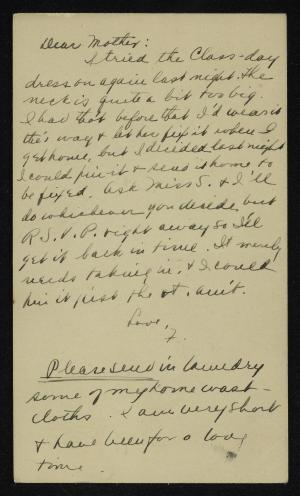 Dear Mother:
I tried the Class-day
dress on again last night. The
neck is quite a bit too big.
I had that before that I'd wear it
this way & let her fix it when I
get home, but I decided last night
I could pin it & send it home to
be fixed. Ask Miss S. & I'll
do whichever you decide, but
R.S.V.P. right away so I'll
get it back in time. It merely
needs taking in, & I could
pin it just the amt.
Love,
F.
Please send in laundry
some of my home wash-
cloths. I am very short
& have been for a long
time.